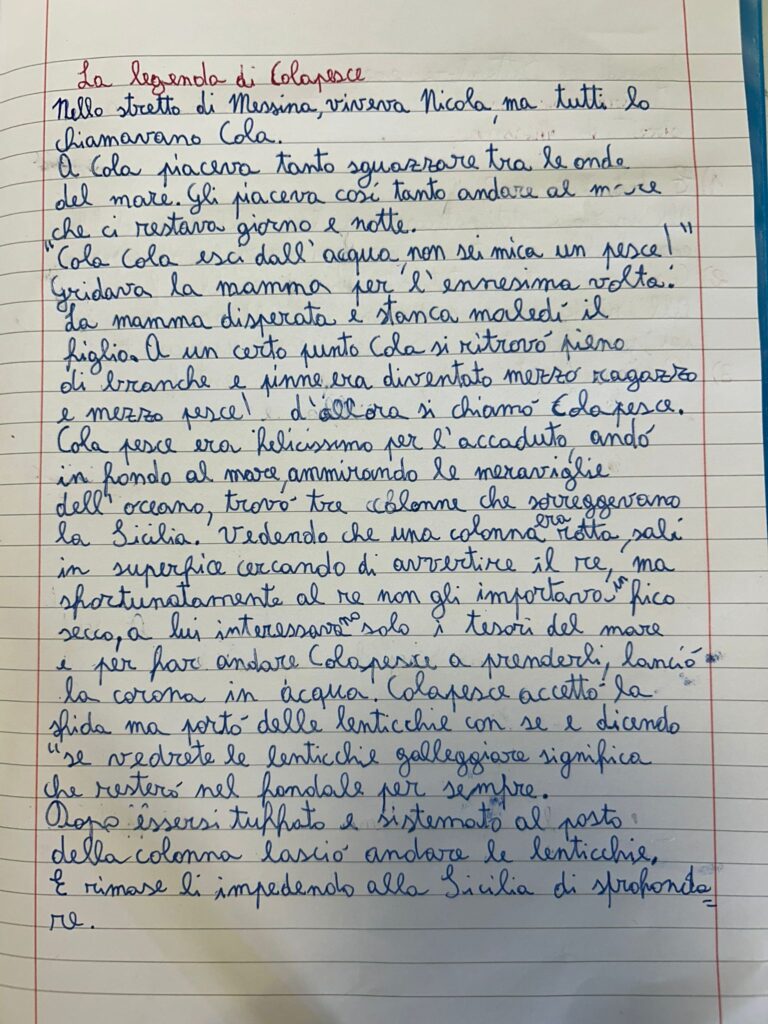 La legenda di Colapesce
Nello stretto di Messina, viveva Nicola, ma tutti lo
chiamavano Cola.
A Cola piaceva tanto sguazzare tra le onde
del mare. Gli piaceva cosí tanto andare al mare
che ci restava giorno e notte.
"Cola Cola esci dall'acqua, non sei mica un pesce!"
Gridava la mamma per l'ennesima volta.
La mamma disperata e stanca maledí il
figlio. A un certo punto Cola si ritrovó pieno
di branche e pinne, era diventato mezzo ragazzo
e mezzo pesce! d'allora si chiamó Colapesce.
Cola pesce era felicissimo per l'accaduto, andó
in fondo al mare, ammirando le meraviglie
dell'oceano, trovó tre colonne che sorreggevano
la Sicilia. Vedendo che una colonna era rotta, salí
in superfice cercando di avvertire il re, ma
sfortunatamente al re non gli importava un fico
secco, a lui interessavano solo i tesori del mare
e per far andare Colapesce a prenderli, lanció
la corona in acqua. Colapesce accettó la
sfida ma portó delle lenticchie con se e dicendo
"se vedrete le lenticchie galleggiare significa
che resteró nel fondale per sempre.
Dopo essersi tuffato e sistemato al posto
della colonna lasció andare le lenticchie.
E rimase lí impedendo alla Sicilia di sprofonda=
re.